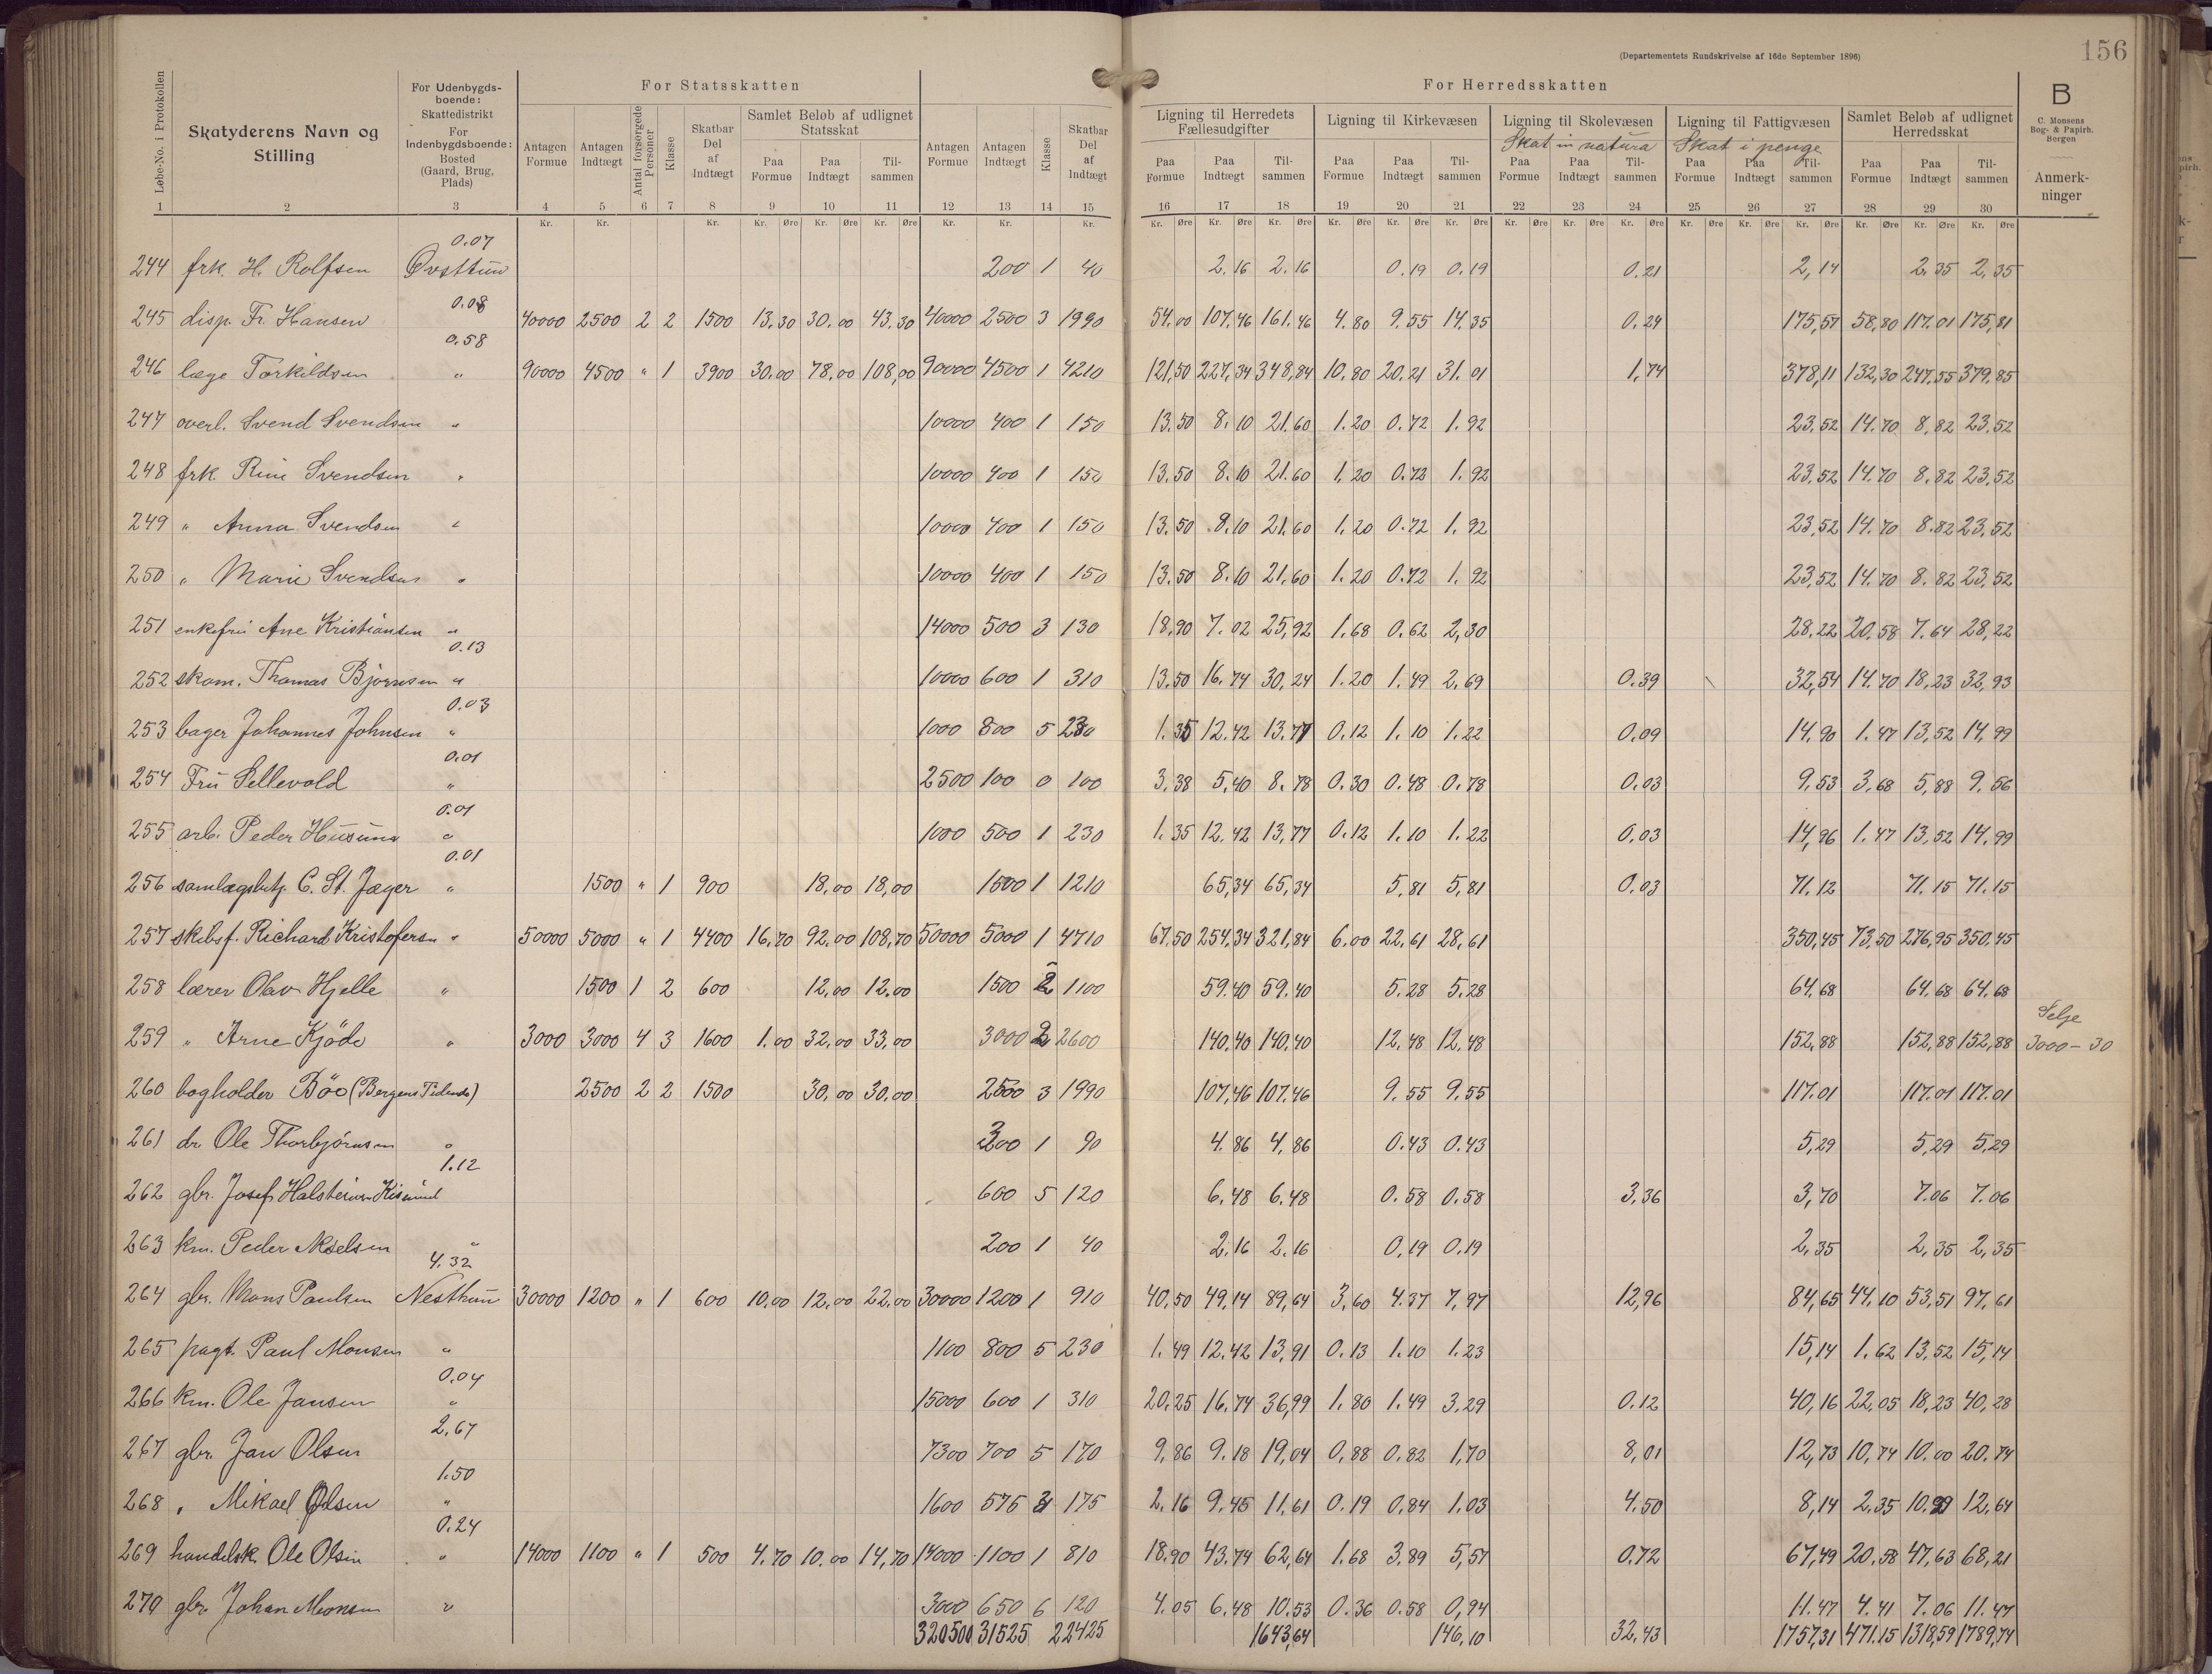 156
(Departementets Rundskrivelse af 16de September 1896)
For Statsskatten
For Herredsskatten
B
C. Monsens
Bog- & Papirh.
Bergen
Anmerk-
ninger
Løbe-No. i Protokollen
Skatyderens Navn og
Stilling
For Udenbygds-
boende:
Skattedistrikt
For
Indenbygdsboende:
Bosted
(Gaard, Brug,
Plads)
Antagen Formue
Antagen Indtægt
Antal forsørgede Personer
Klasse
Skatbar Del af Indtægt
Samlet Beløb af udlignet Statsskat
Paa Formue
Paa Indtægt
Til-sammen
Antagen Formue
Antagen Indtægt
Klasse
Skatbar Del af Indtægt
Ligning til Herredets Fællesudgifter
Paa Formue
Paa Indtægt
Til-sammen
Ligning til Kirkevæsen
Paa Formue
Paa Indtægt
Til-sammen
Ligning til Skolevæsen
Skat in natura
Paa Formue
Paa Indtægt
Til-sammen
Ligning til Fattigvæsen
Skat i penge
Paa Formue
Paa Indtægt
Til-sammen
Samlet Beløb af udlignet Herredsskat
Paa Formue
Paa Indtægt
Til-sammen
1 2 3 4 5 6 7 8 9 10 11 12 13 14 15 16 17 18 19 20 21 22 23 24 25 26 27 28 29 30
Kr. Kr. Kr. Kr. Øre Kr. Øre Kr. Øre Kr. Kr. Kr. Kr. Øre Kr. Øre Kr. Øre Kr. Øre Kr. Øre Kr. Øre Kr. Øre Kr. Øre Kr. Øre Kr. Øre Kr. Øre Kr. Øre Kr. Øre Kr. Øre Kr. Øre
0.07
244 frk. H. Rolfsen Øvsttun 200 1 40 2.16 2.16 0.19 0.19 0.21 2,14 2.35 2,35
0.08
245 disp. Fr. Hansen 40000 2500 2 2 1500 13.30 30.00 43.30 40000 2500 3 1990 54.00 107.46 161.46 4.80 9.55 14.35 0.24 175,57 58,80 117.01 175,81
0.58
246 læge Torkildsen " 90000 4500 " 1 3900 30.00 78,00 108,00 90000 4500 1 4210 121,50 227,34 348,84 10,80 20,21 31.01 1,74 378,11 132,30 247,55 379,85
247 overl. Svend Svendsen " 10000 400 1 150 13.50 8.10 21.60 1.20 0.72 1.92 23.52 14.70 8,82 23,52
248 frk. Rini Svendsen " 10000 400 1 150 13.50 8.10 21.60 1.20 0.72 1.92 23.52 14.70 8.82 23,52
249 " Anna Svendsen " 10000 400 1 150 13.50 8.10 21.60 1.20 0.72 1.92 23,52 14.70 8.82 23,52
250 " Marie Svendsen " 10000 400 1 150 13.50 8.10 21,60 1.20 0.72 1.92 23,52 14.70 8.82 23,52
251 enkefru Ane Kristiansen " 14000 500 3 130 18,90 7.02 25,92 1.68 0.62 2,30 28,22 20.58 7.64 28,22
0.13
252 skom. Thomas Bjørnsen " 10000 600 1 310 13.50 16.74 30,24 1.20 1.49 2.69 0.39 32,54 14.70 18,23 32,93
0.03
253 bager Johannes Johnsen " 1000 800 5 230 1.35 12.42 13.77 0.12 1.10 1.22 0.09 14.90 1.47 13,52 14,99
0.01
254 Fru Sellevold " 2500 100 0 100 3.38 5,40 8.78 0.30 0.48 0.78 0.03 9,53 3,68 5,88 9.56
0.01
255 arb. Peder Husum " 1000 500 1 230 1.35 12.42 13,77 0.12 1.10 1.22 0.03 14,96 1.47 13,52 14.99
0.01
256 samlagsbetj. C. St. Jæger " 1500 " 1 900 18.00 18,00 1500 1 1210 65,34 65,34 5,81 5,81 0.03 71.12 71.15 71.15
257 skibsf. Richard Kristofersen " 50000 5000 " 1 4400 16,70 92,00 108,70 50000 5000 1 4710 67,50 254,34 321,84 6,00 22,61 28,61 350,45 73,50 276,95 350.45
258 lærer Olav Hjelle " 1500 1 2 600 12,00 12.00 1500 2 1100 59.40 59.40 5.28 5,28 64,68 64,68 64.68
Selje
259 " Arne Kjöde " 3000 3000 4 3 1600 1.00 32.00 33.00 3000 2 2600 140,40 140,40 12,48 12,48 152,88 152,88 152,88 3000-30
260 bogholder Böe (Bergens Tidende) 2500 2 2 1500 30,00 30,00 2500 3 1990 107,46 107.46 9.55 9,55 117.01 117.01 117.01
261 dr. Ole Thorbjørnsen " 300 1 90 4.86 4,86 0.43 0.43 5,29 5,29 5,29
1.12
262 gbr. Josef Halsteinsen 600 5 120 6,48 6,48 0.58 0.58 3,36 3,70 7.06 7.06
263 km. Peder Nielsen " 200 1 40 2,16 2.16 0,19 0.19 2,35 2,35 2,35
4.32
264 gbr. Mons Paulsen Nesthun 30000 1200 " 1 600 10,00 12,00 22,00 30000 1200 1 910 40,50 49,14 89,64 3,60 4.37 7,97 12,96 84,65 44,10 53,51 97,61
265 pagt. Paul Monsen " 1100 800 5 230 1.49 12.42 13,91 0.13 1.10 1.23 15,14 1.62 13,52 15,14
0.04
266 km. Ole Jansen " 15000 600 1 310 20.25 16,74 36,99 1.80 1.49 3.29 0.12 40,16 22.05 18,23 40,28
2,67
267 gbr. Jan Olsen 7300 700 5 170 9,86 9.18 19,04 0,88 0.82 1,70 8,01 12,73 10,74 10.00 20.74
1.50
268 " Mikael Olsen " 1600 575 3 175 2.16 9.45 11,61 0.19 0,84 1.03 4.50 8,14 2.35 10.29 12,64
0.24
269 handelsk. Ole Olsen " 14000 1100 " 1 500 4.70 10.00 14,70 14000 1100 1 810 18,90 43.74 62,64 1.68 3.89 5,57 0.72 67,49 20,58 47,63 68,21
270 gbr. Johan Monsen " 3000 650 6 120 4.05 6.48 10.53 0.36 0.58 0,94 11.47 4.41 7.06 11.47
320500 31525 22425 1643,64 146,10 32.43 1757,31 471.15 1318,59 1789,74